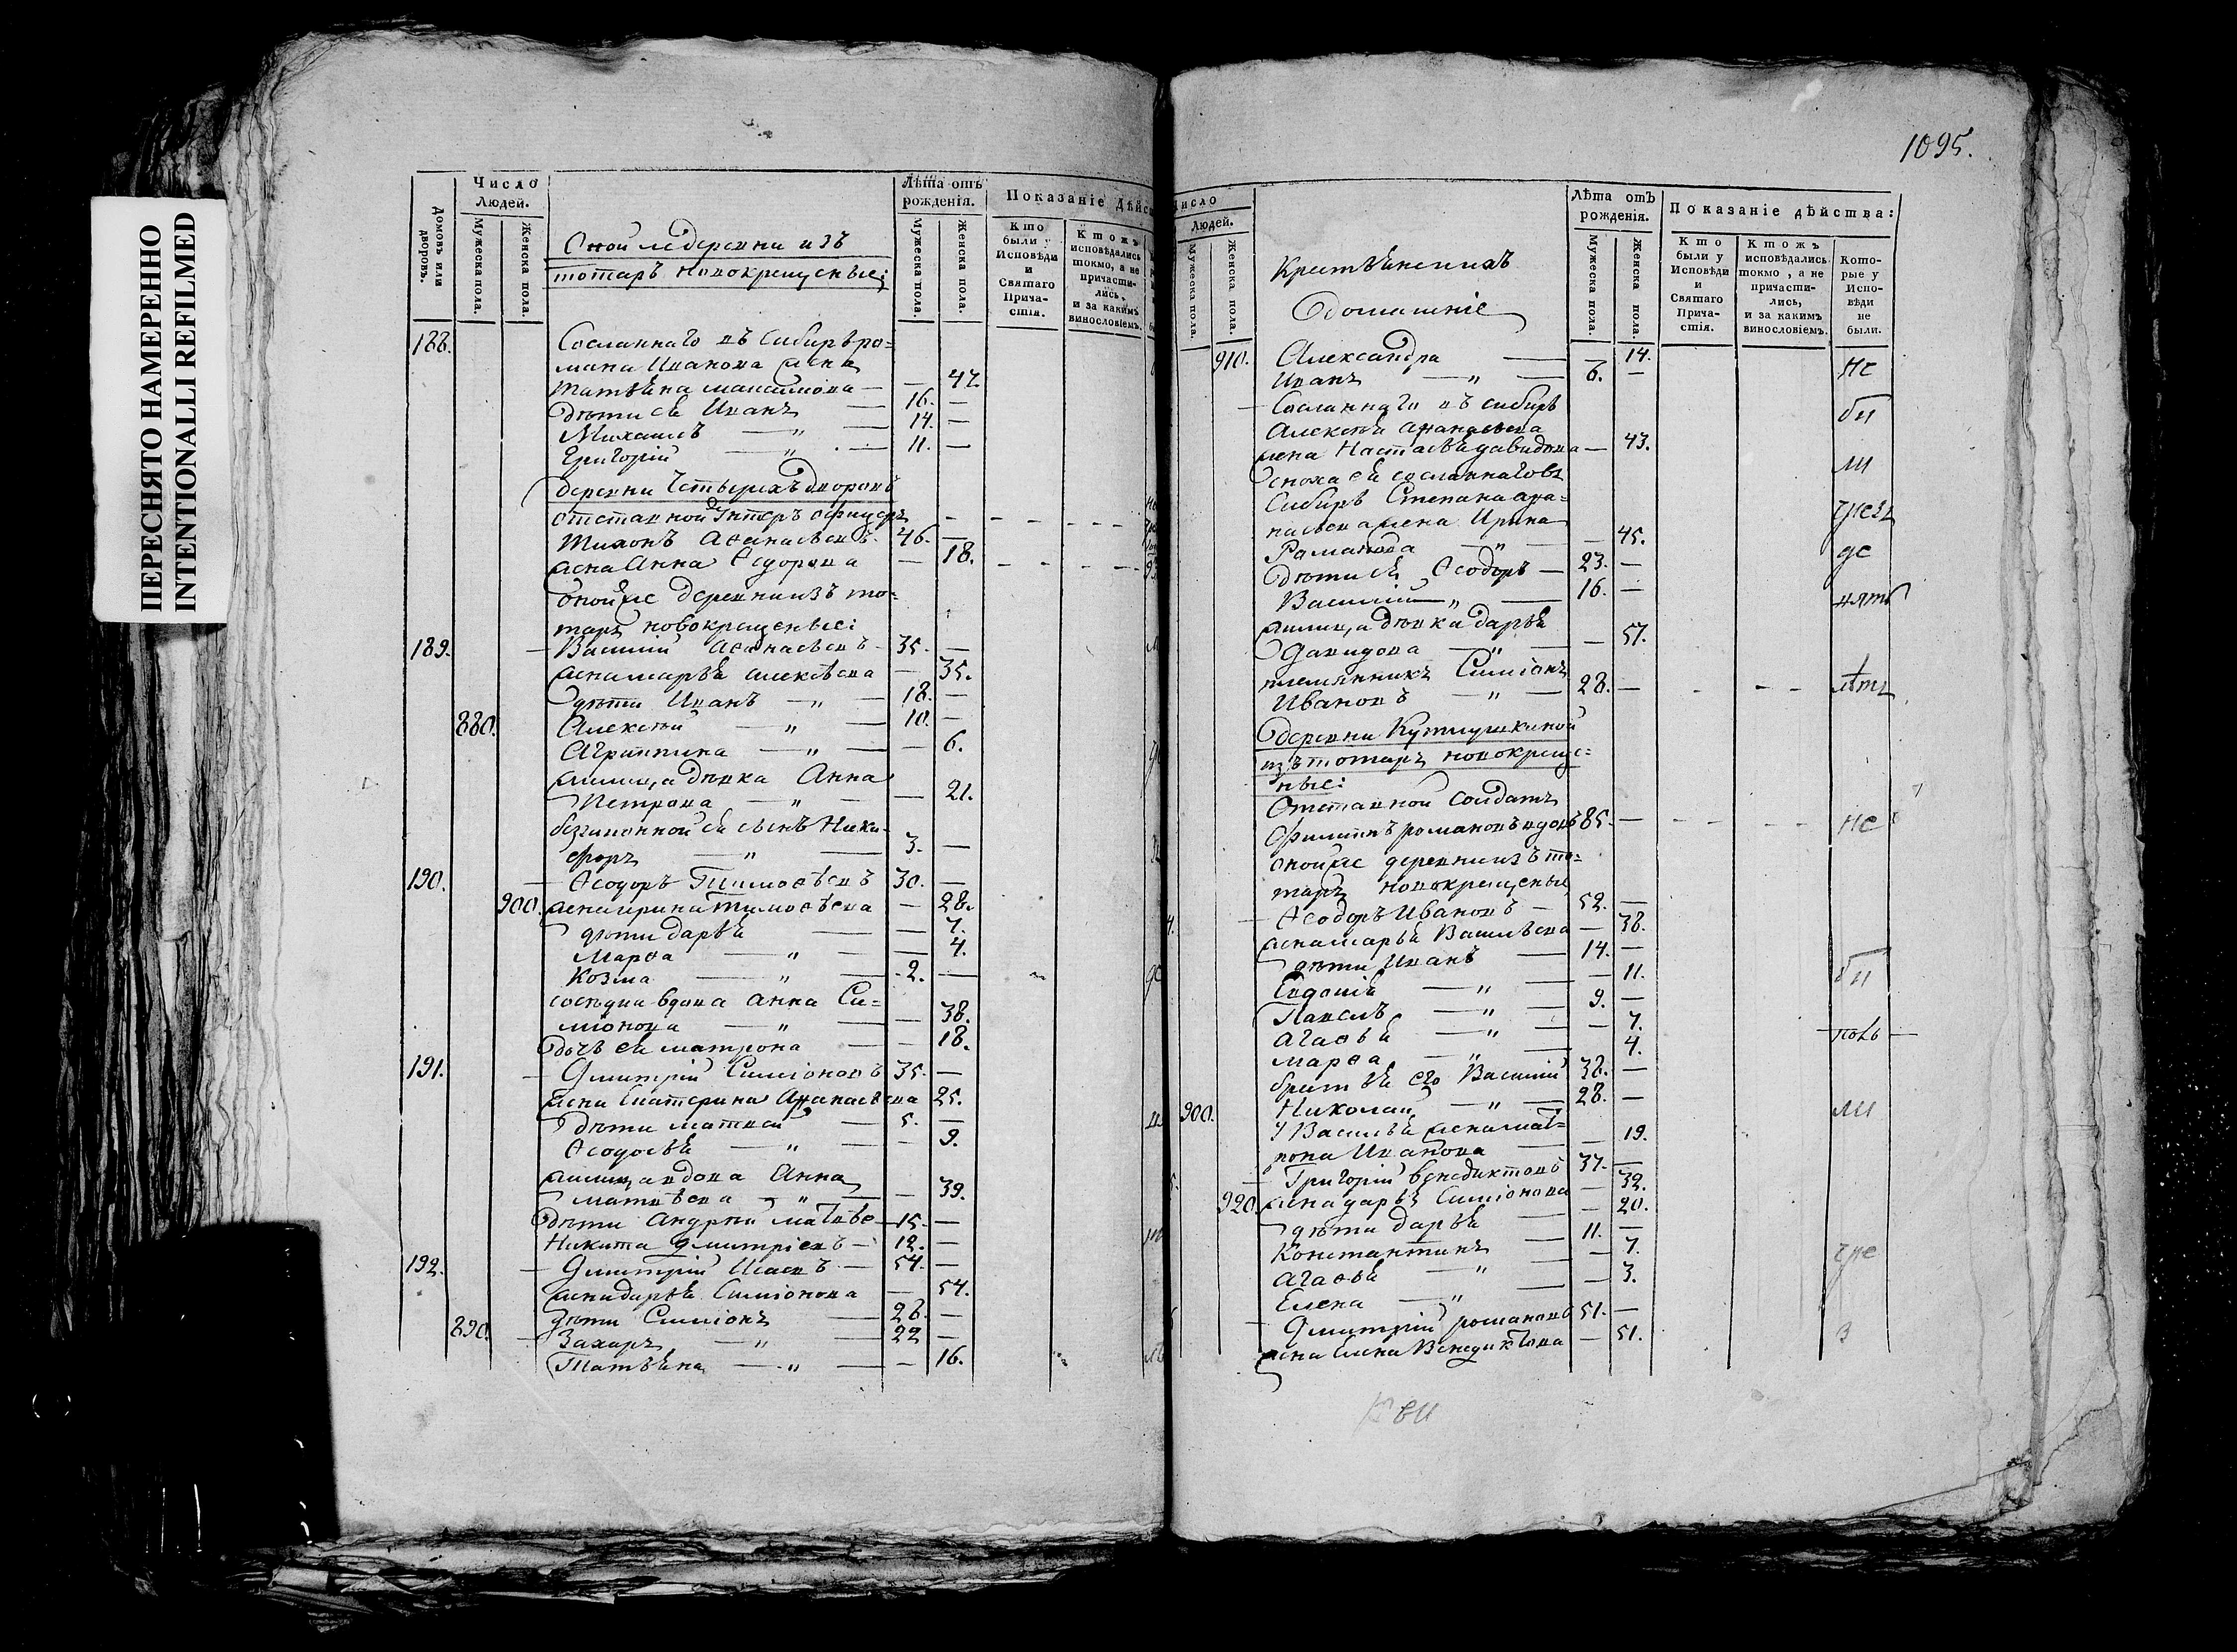 ПЕРЕСНЯТО НАМЕРЕННО
INTENTIONALLI REFILMED
Домовъ или дворовъ.
Число Людей.
Мужеска пола.
Женска пола.
Оной же деревни изъ
тотаръ новокрещеные:
Лѣта отъ рожденія.
Мужеска пола.
Женска пола.
Показаніе Дѣйс
Кто были у Исповѣди и Святаго Причастія.
Ктожъ исповѣдались токмо, а не причастились, и за какимъ винословіемъ.
188. Сосланнаго въ Сибирь ро=
мана Иванова жена
Татьяна Максимова — — 47.
дѣти ея Иванъ — 16. —
Михаилъ — „ — 14. —
Григорій — „ — 11. —
деревни Четырехъ дворовъ
отставной Унтеръ офицеръ
Тихонъ Аѳанасьевъ 46. —
жена Анна Ѳедорова — 18.
оной же деревни изъ то=
таръ новокрещеные:
189. Василій Аѳанасьевъ 35. —
жена Марья Алексѣева — 35.
дѣти Иванъ — „ — 18. —
880. Алексѣй — „ — 10. —
Агрипина — „ — — 6.
жилица девка Анна
Петрова — „ — — 21.
беззаконной ея сынъ Ники=
форъ — „ — 3. —
190. Ѳеодоръ Тимоѳѣевъ 30. —
900. жена Ирина Тимоѳѣева — 28.
дѣти Дарья — — 7.
Марѳа — „ — — 4.
Козма — „ — 2. —
соседка вдова Анна Си=
мionова — „ — — 38.
дочь ея Матрона — — 18.
191. Дмитрій Симіоновъ 35. —
жена Екатерина Аѳанасьева 25.
дѣти Матвей — 5. —
Ѳеодосья — „ — — 9.
жилица вдова Анна
Матвѣева — „ — — 39.
дѣти Андрей Матвѣе 15. —
Никита Дмитріевъ — 12. —
192. Дмитрій Исаевъ — 54. —
жена Дарья Симіонова — 54.
дѣти Симіонъ — 26. —
890. Захаръ — „ — 22 —
Татьяна — „ — — 16.
1095.
Число Людей.
Мужеска пола.
Женска пола.
Крестьянскихъ
Домашніе
Лѣта отъ рожденія.
Мужеска пола.
Женска пола.
Показаніе дѣйства:
Кто были у Исповѣди и Святаго Причастія.
Ктожъ исповѣдались токмо, а не причастились, и за какимъ винословіемъ.
Которые у Исповѣди не были.
910. Александра — — 14.
Иванъ — „ — 6. — не
Сосланнаго въ Сибирь бы
Алексѣя Аѳанасьева
жена Настасья Давидова — 43. ли
сноха ея сосланнаго въ
Сибирь Степана Аѳа=
насьева жена Ирина чрезъ
Романова — „ — — 45.
дѣти ея Ѳеодоръ — 23. — де
Василий — „ — 16. —
жилица девка Дарья вять
Давидова — „ — — 57.
племянникъ Симіонъ
Ивановъ — „ — 28. — лѣтъ
деревни Кутлушкиной
изъ тотаръ новокреще=
ные:
Отставной солдатъ
Филиппъ Романовъ вдовъ 85. — не
оной же деревни изъ то=
таръ новокрещеные
Ѳеодоръ Ивановъ — 52. —
жена Марья Васильева — 38.
дѣти Иванъ — 14. —
Евдокія — „ — — 11. бы
Павелъ — „ — 9. —
Агаѳья — „ — — 7.
Марѳа — „ — — 4.
братья его Василий 38. —
900. Николай — „ — 28. — ли
У Василья жена Мат=
рона Иванова — — 19.
Григорій Бенедиктовъ 37. —
920. жена Дарья Симіонова — 32.
дѣти Дарья — — 20.
Константинъ — 11. —
Агаѳья — „ — — 7. чре
Елена — „ — — 3.
Дмитрій Романовъ 51. —
жена Елена Венедиктова — 51. з